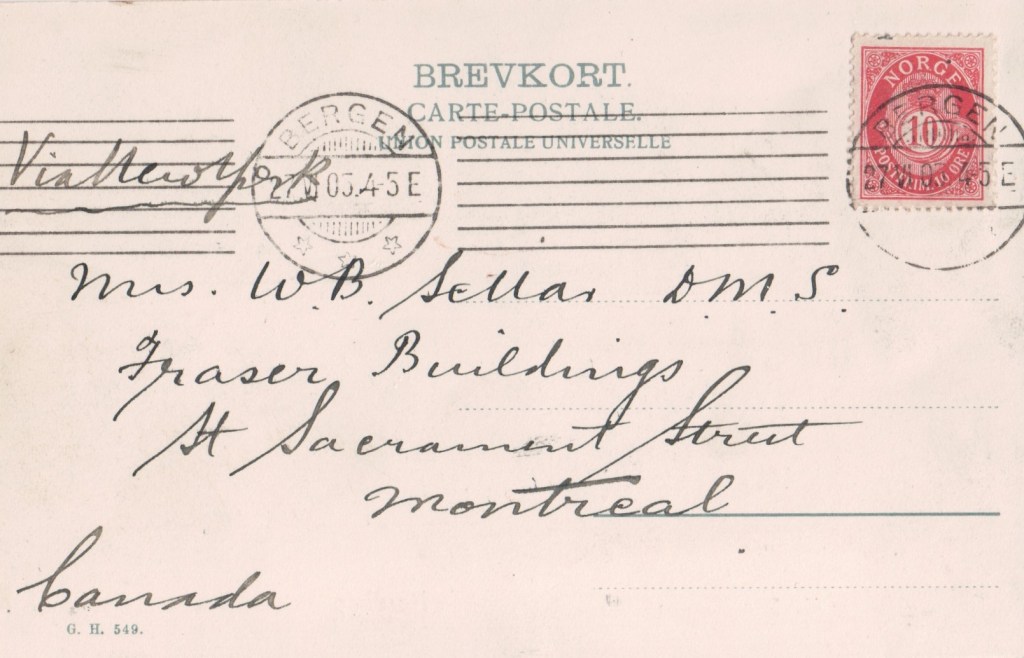 BREVKORT.
CARTE-POSTALE.
UNION POSTALE UNIVERSELLE
NORGE
10
POSTFRIM. 10 ØRE
BERGEN
4-5 E
BERGEN
4-5 E
Via New York
Mrs. W.B. Sellar D.M.S.
Fraser Buildings
St Sacrament Street
Montreal
Canada
G. H. 549.